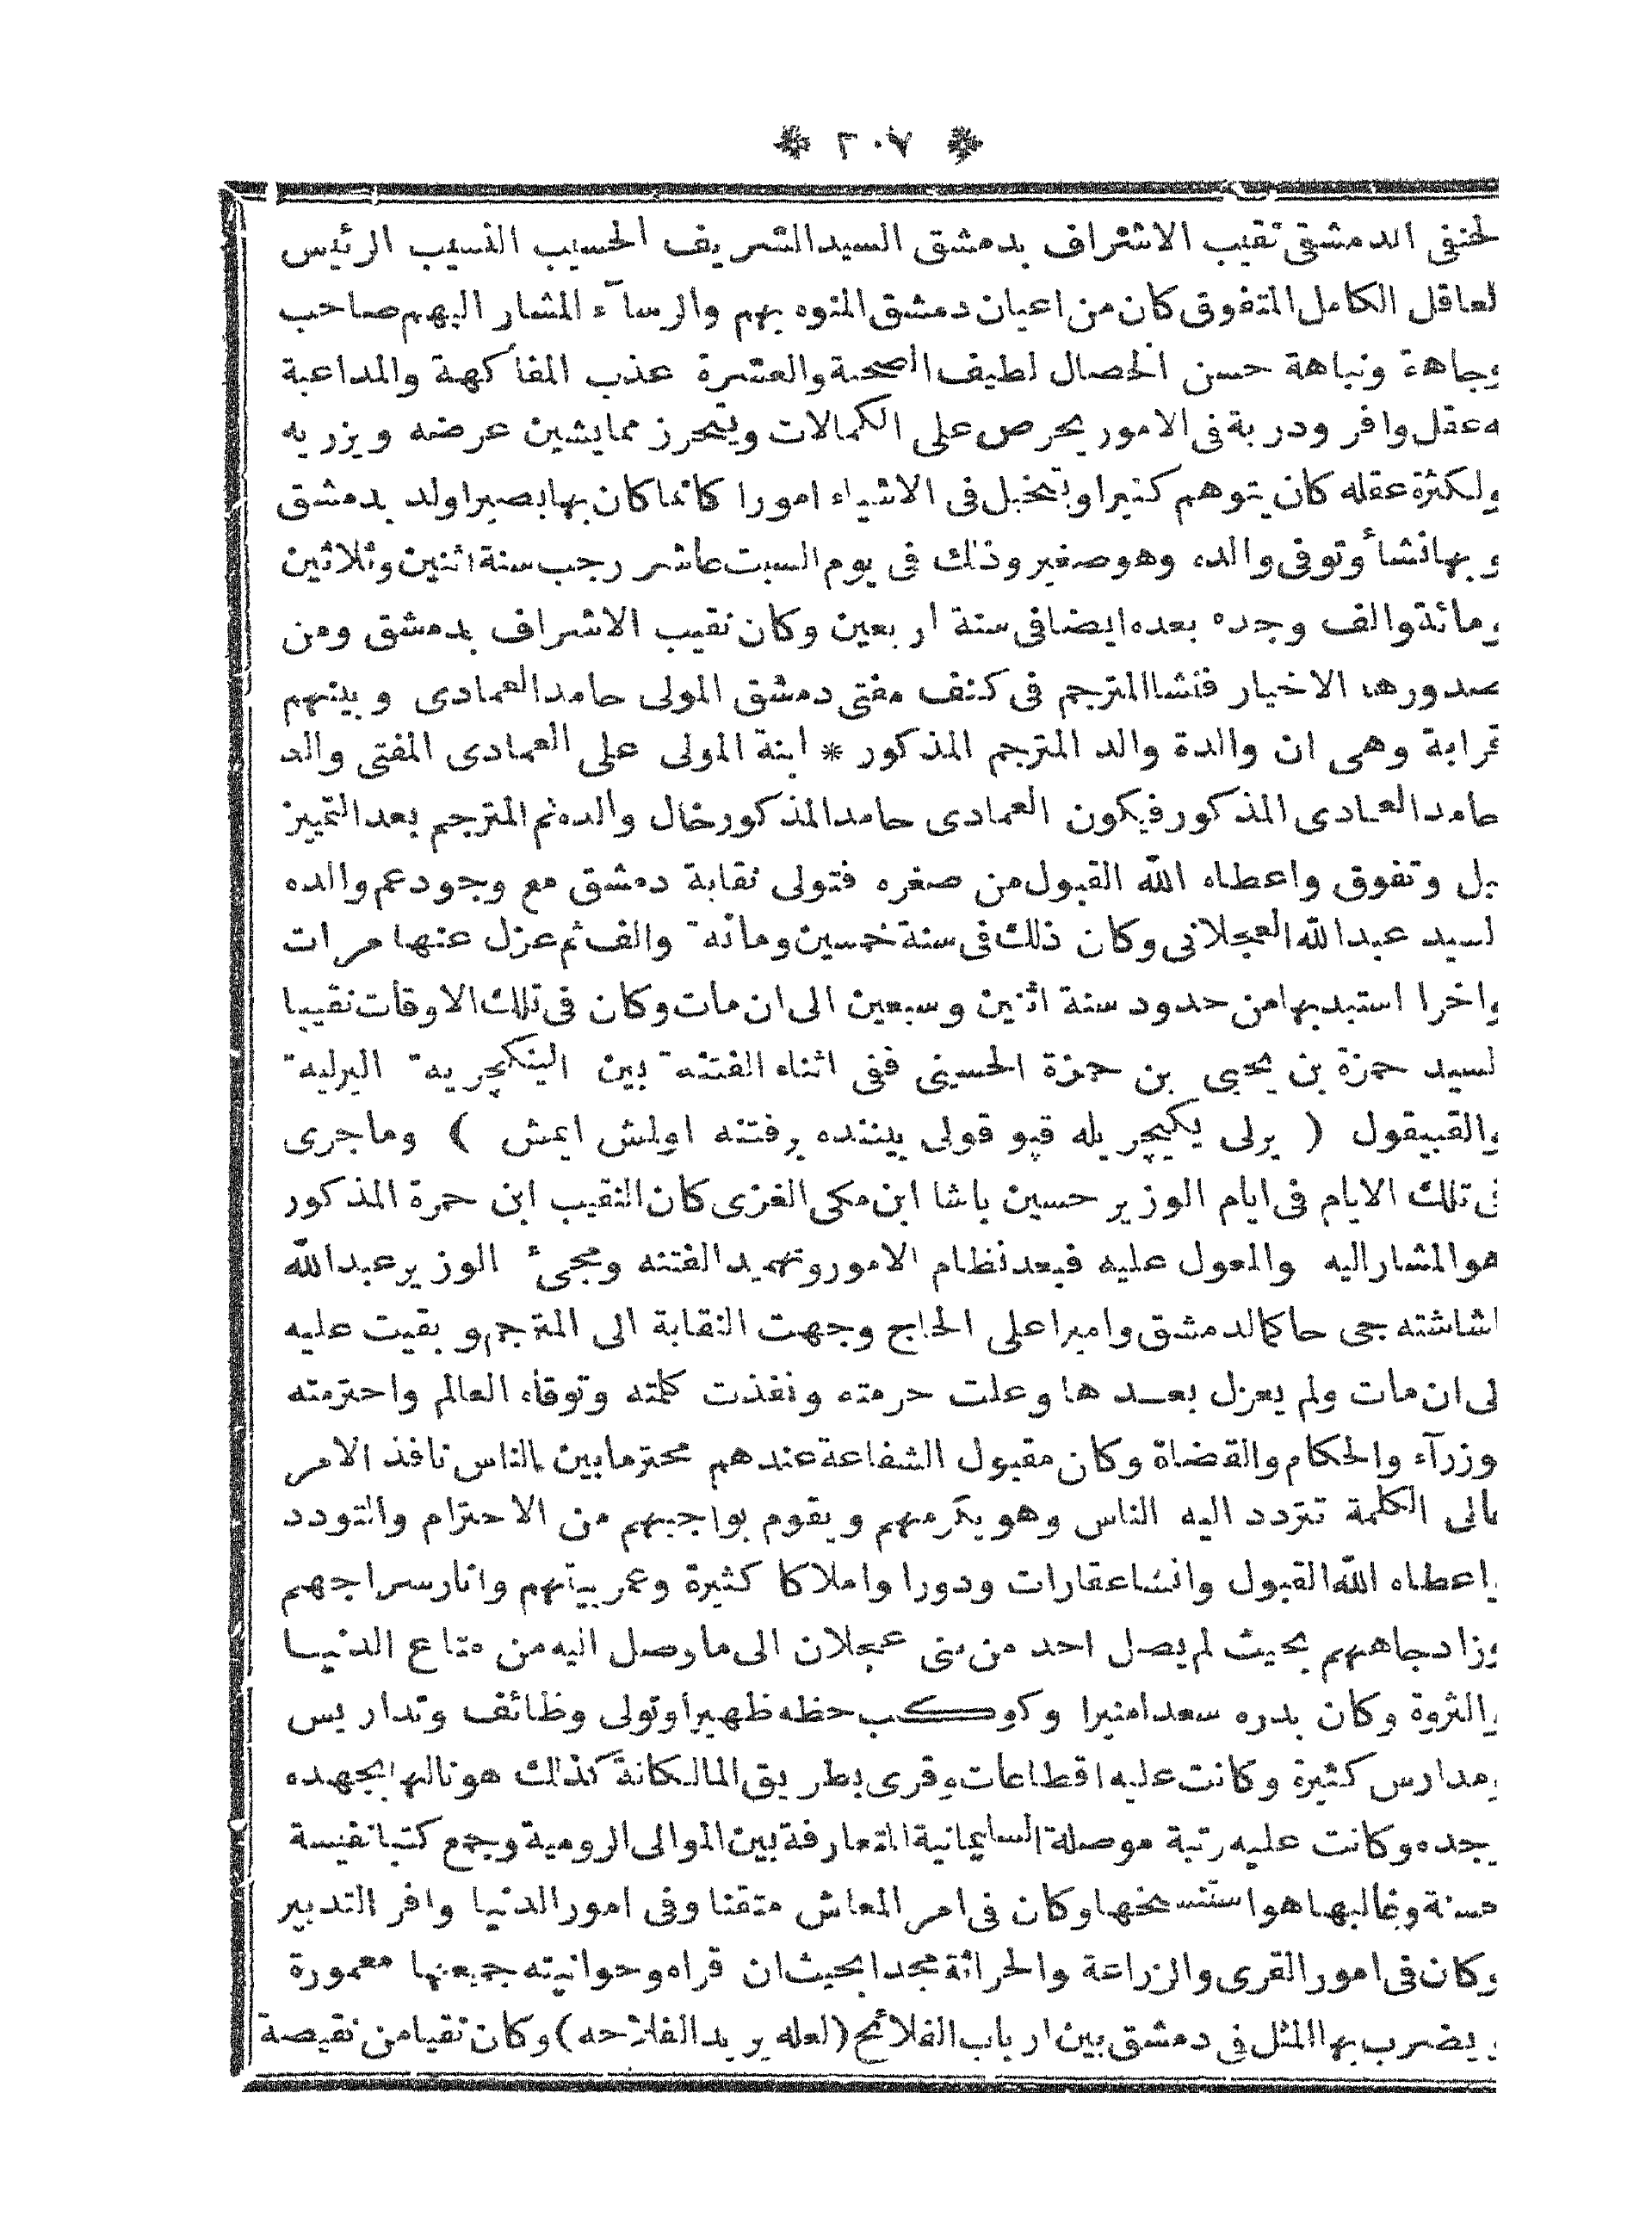 ❊ ٢٠٧ ❊
لحنفى الدمشقى نقيب الاشراف بدمشق السيد الشريف الحسيب النسيب الرئيس
لعاقل الكامل المتفوق كان من اعيان دمشق المنوه بهم والرسآء المشار اليهم صاحب
وجاهة ونباهة حسن الخصال لطيف الصحبة والعشرة عذب المفأكهة والمداعبة
ه عقل وافر ودربة فى الامور يحرص على الكمالات ويتحرز مما يشين عرضه ويزريه
ولكثرة عقله كان يتوهم كثيرا ويتخيل فى الاشياء امورا كانما كان بها بصيرا ولد بدمشق
وبها نشأ وتوفى والده وهو صغير وذلك فى يوم السبت عاشر رجب سنة اثنين وثلاثين
ومائة والف وجده بعده ايضا فى سنة اربعين وكان نقيب الاشراف بدمشق ومن
صدورها الاخيار فنشا المترجم فى كنف مفتى دمشق المولى حامد العمادى وبينهم
قرابة وهى ان والدة والد المترجم المذكور * ابنة المولى على العمادى المفتى والد
حامد العمادى المذكور فيكون العمادى حامد المذكور خال والده ثم المترجم بعد التمييز
بل وتفوق واعطاه الله القبول من صغره فتولى نقابة دمشق مع وجود عم والده
لسيد عبدالله العجلانى وكان ذلك فى سنة خمسين ومائة والف ثم عزل عنها مرات
واخرا استبد بها من حدود سنة اثنين وسبعين الى ان مات وكان فى تلك الاوقات نقيبا
لسيد حمزة بن يحيى بن حمزة الحسينى ففى اثناء الفتنة بين الينكچرية اليرلية
والقبيقول ( يرلى يكيچريله قپو قولى بيننده برفتنه اولمش ايمش ) وماجرى
فى تلك الايام فى ايام الوزير حسين باشا ابن مكى الغزى كان النقيب ابن حمزة المذكور
هو المشار اليه والمعول عليه فبعد نظام الامور وتمهيد الفتنه ومجئ الوزير عبدالله
اشا شته جى حاكما لدمشق واميرا على الحاج وجهت النقابة الى المترجم وبقيت عليه
لى ان مات ولم يعزل بعدها وعلت حرمته ونفذت كلمته وتوقاه العالم واحترمته
وزرآء والحكام والقضاة وكان مقبول الشفاعة عندهم محترما بين الناس نافذ الامر
عالى الكلمة تتردد اليه الناس وهو يكرمهم ويقوم بواجبهم من الاحترام والتودد
واعطاه الله القبول وانشا عقارات ودورا واملاكا كثيرة وعمر بيتهم وانار سراجهم
وزاد جاههم بحيث لم يصل احد من بنى عجلان الى ما وصل اليه من متاع الدنيا
والثروة وكان بدره سعدا منيرا وكوكب حظه ظهيرا وتولى وظائف وتداريس
ومدارس كثيرة وكانت عليه اقطاعات وقرى بطريق المالكانة كذلك هو نالها بجهده
وجده وكانت عليه رتبة موصلة السليمانية المتعارفة بين الموالى الرومية وجمع كتبا نفيسة
حسنة وغالبها هو استنسخها وكان فى امر المعاش متقنا وفى امور الدنيا وافر التدبير
وكان فى امور القرى والزراعة والحراثة مجدا بحيث ان قراه وحوانيته جميعها معمورة
ويضرب بها المثل فى دمشق بين ارباب الفلائح (لعله يريد الفلاحه) وكان نقيا من نقيصة